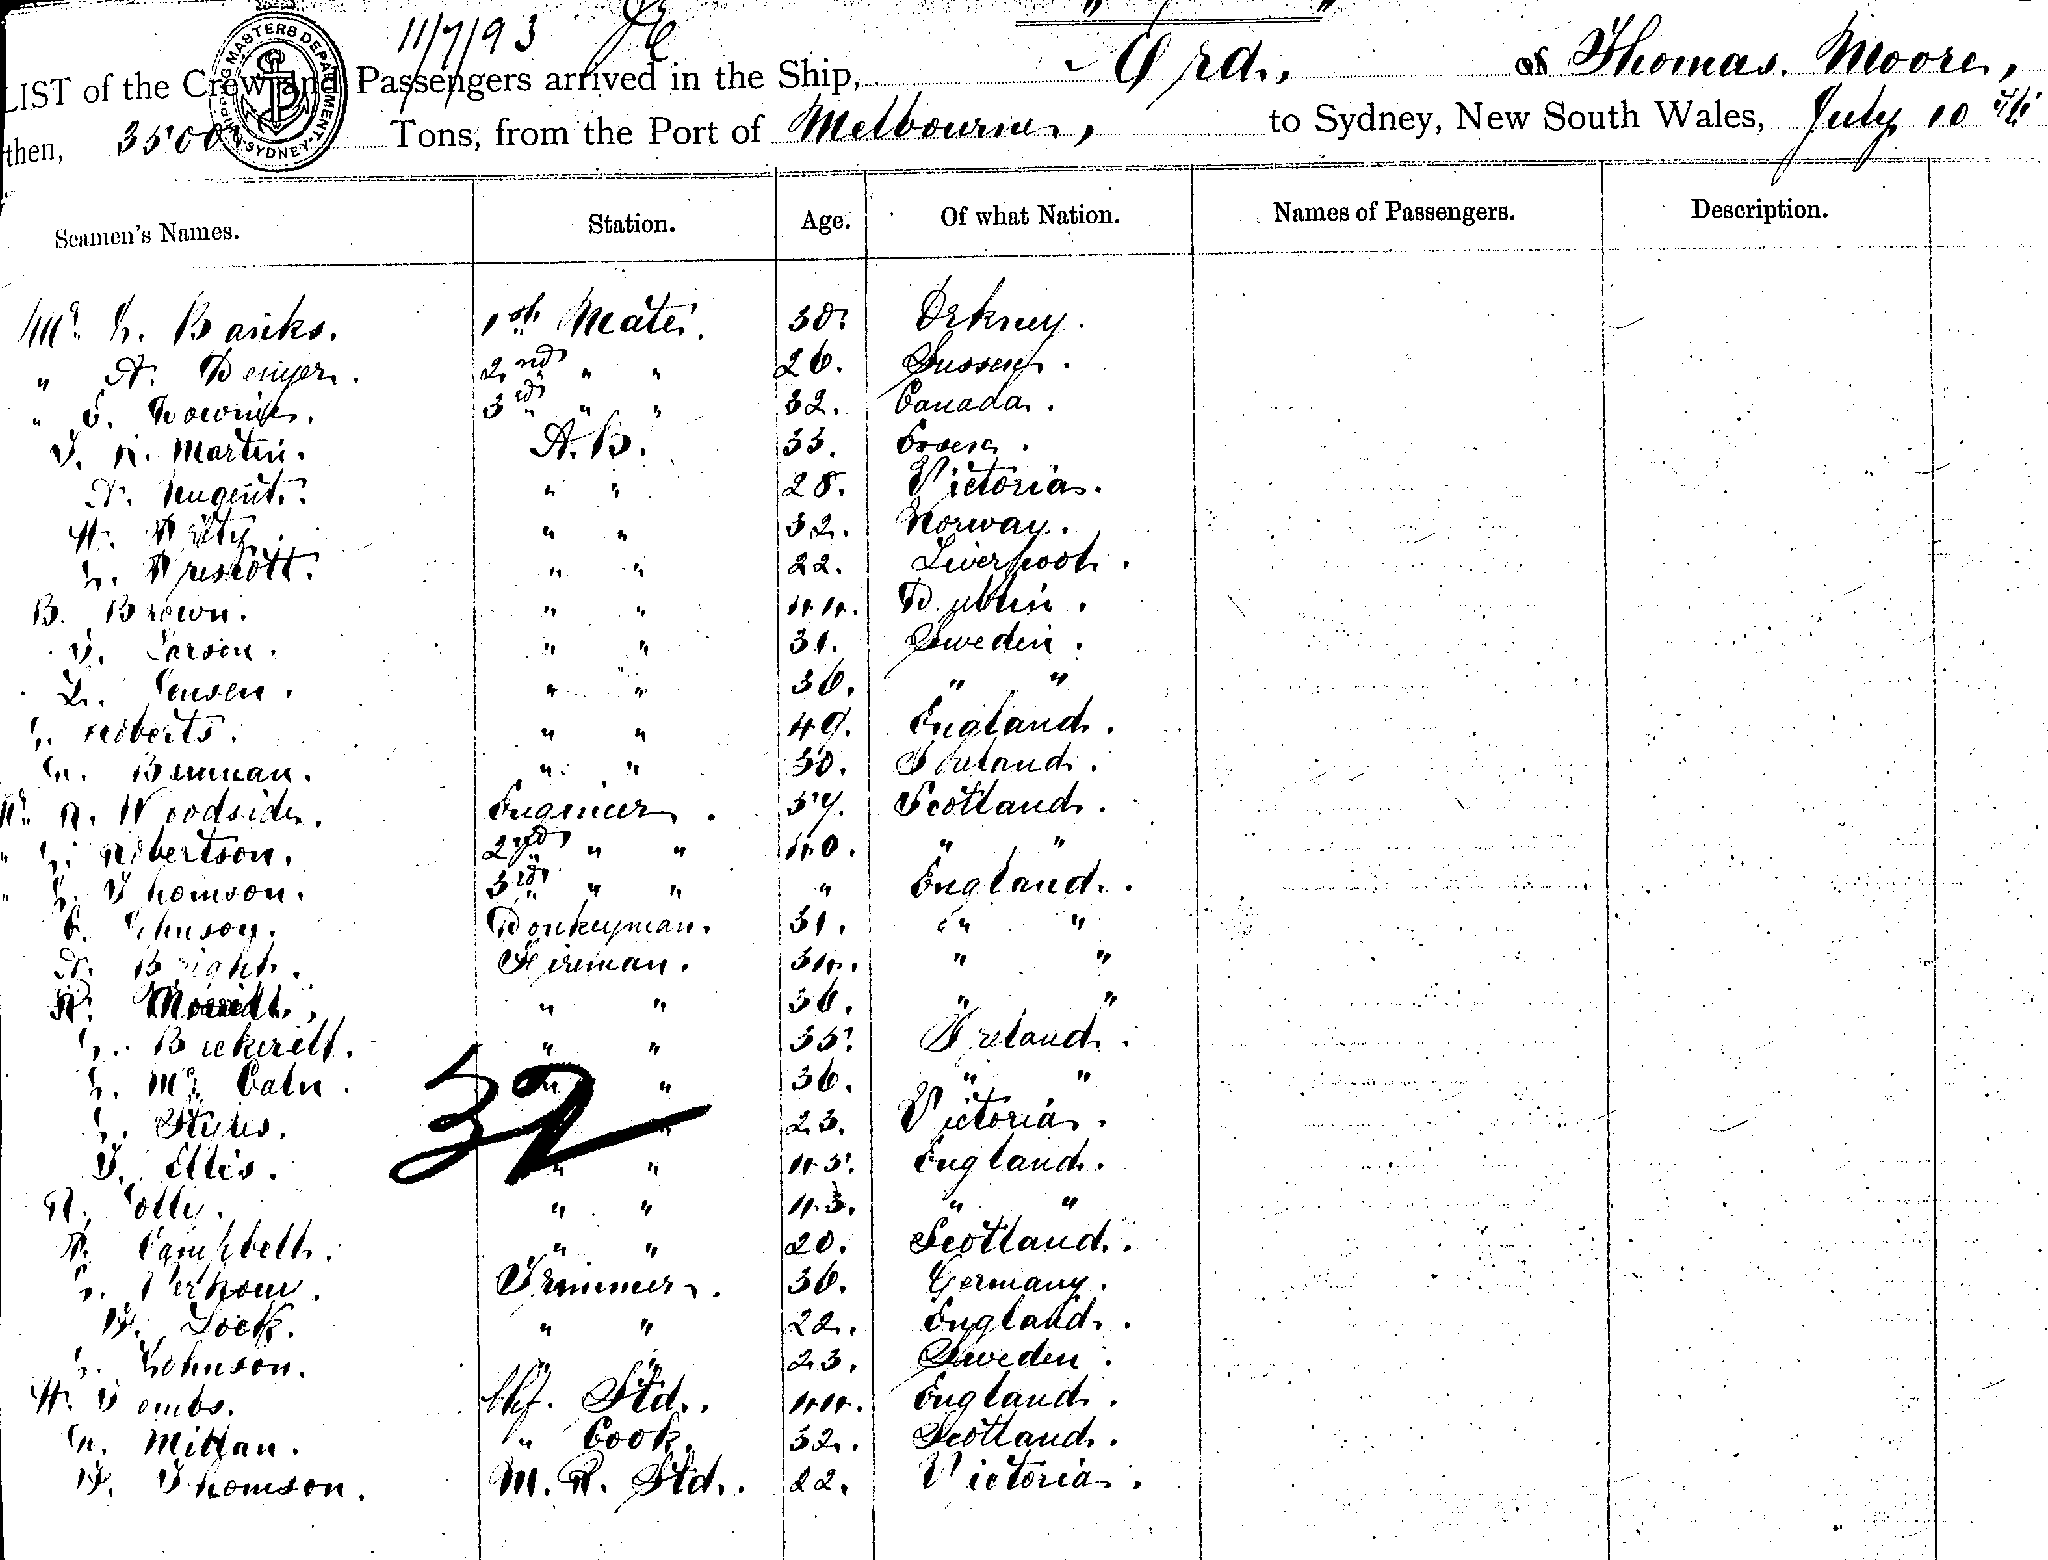 11/7/93
LIST of the Crew and Passengers arrived in the Ship, Ord, of Thomas Moore,
then, 3500 Tons, from the Port of Melbourne, to Sydney, New South Wales, July 10th
SHIPPING MASTERS DEPARTMENT SYDNEY
Seamen's Names. Station. Age. Of what Nation. Names of Passengers. Description.
Mr. J. Banks. 1st Mate. 38. Orkney.
" A. Denyer. 2nd " " 26. Sussex.
" 3rd " " 32. Canada.
Martin. A.B. 33. Essex.
A. Nugent. " " 28. Victoria.
" " 32. Norway.
J. Prescott. " " 22. Liverpool.
B. Brown. " " 44. Dublin.
Larsen. " " 31. Sweden.
Jensen. " " 36. " "
J. Roberts. " " 49. England.
Brennan. " " 30. Ireland.
Mr. R. Woodside. Engineer. 57. Scotland.
" J. Robertson. 2nd " " 40. " "
" J. Thomson. 3rd " " " England.
Johnson. Donkeyman. 31. " "
A. Bright. Fireman. 34. " "
" " 36. " "
J. Bickerell. " " 35. Ireland.
J. Mc " " 36. " "
J. Styles. " 23. Victoria.
T. Ellis. " " 45. England.
32
" " 43. " "
Campbell. " " 20. Scotland.
Trimmer. 36. Germany.
Lock. " " 22. England.
J. Johnson. " 23. Sweden.
H. Tombs. Chf. Std. 44. England.
Millan. " Cook. 32. Scotland.
Thomson. M. R. Std. 22. Victoria.